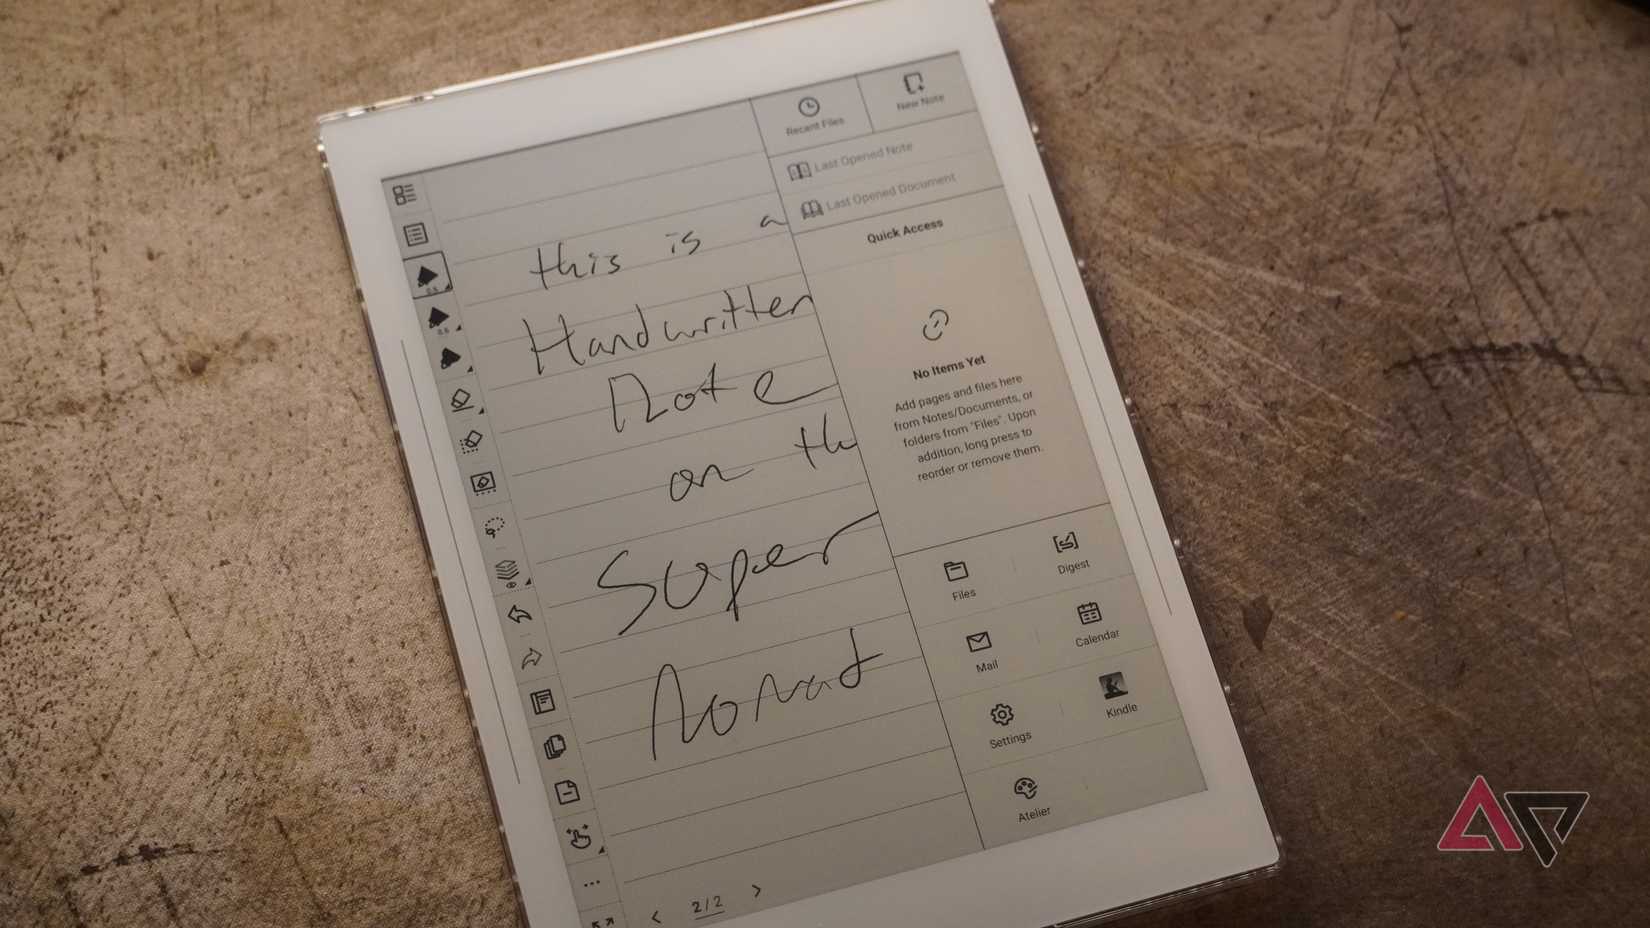 Recent Files
New Note
Last Opened Note
Last Opened Document
Quick Access
No Items Yet
Add pages and files here
from Notes/Documents, or
folders from "Files". Upon
addition, long press to
reorder or remove them.
Files
Digest
Mail
Calendar
Settings
Kindle
Atelier
0.5
0.5
this is a
Handwritten
Note
on th
Super
Nomad
< 2/2 >